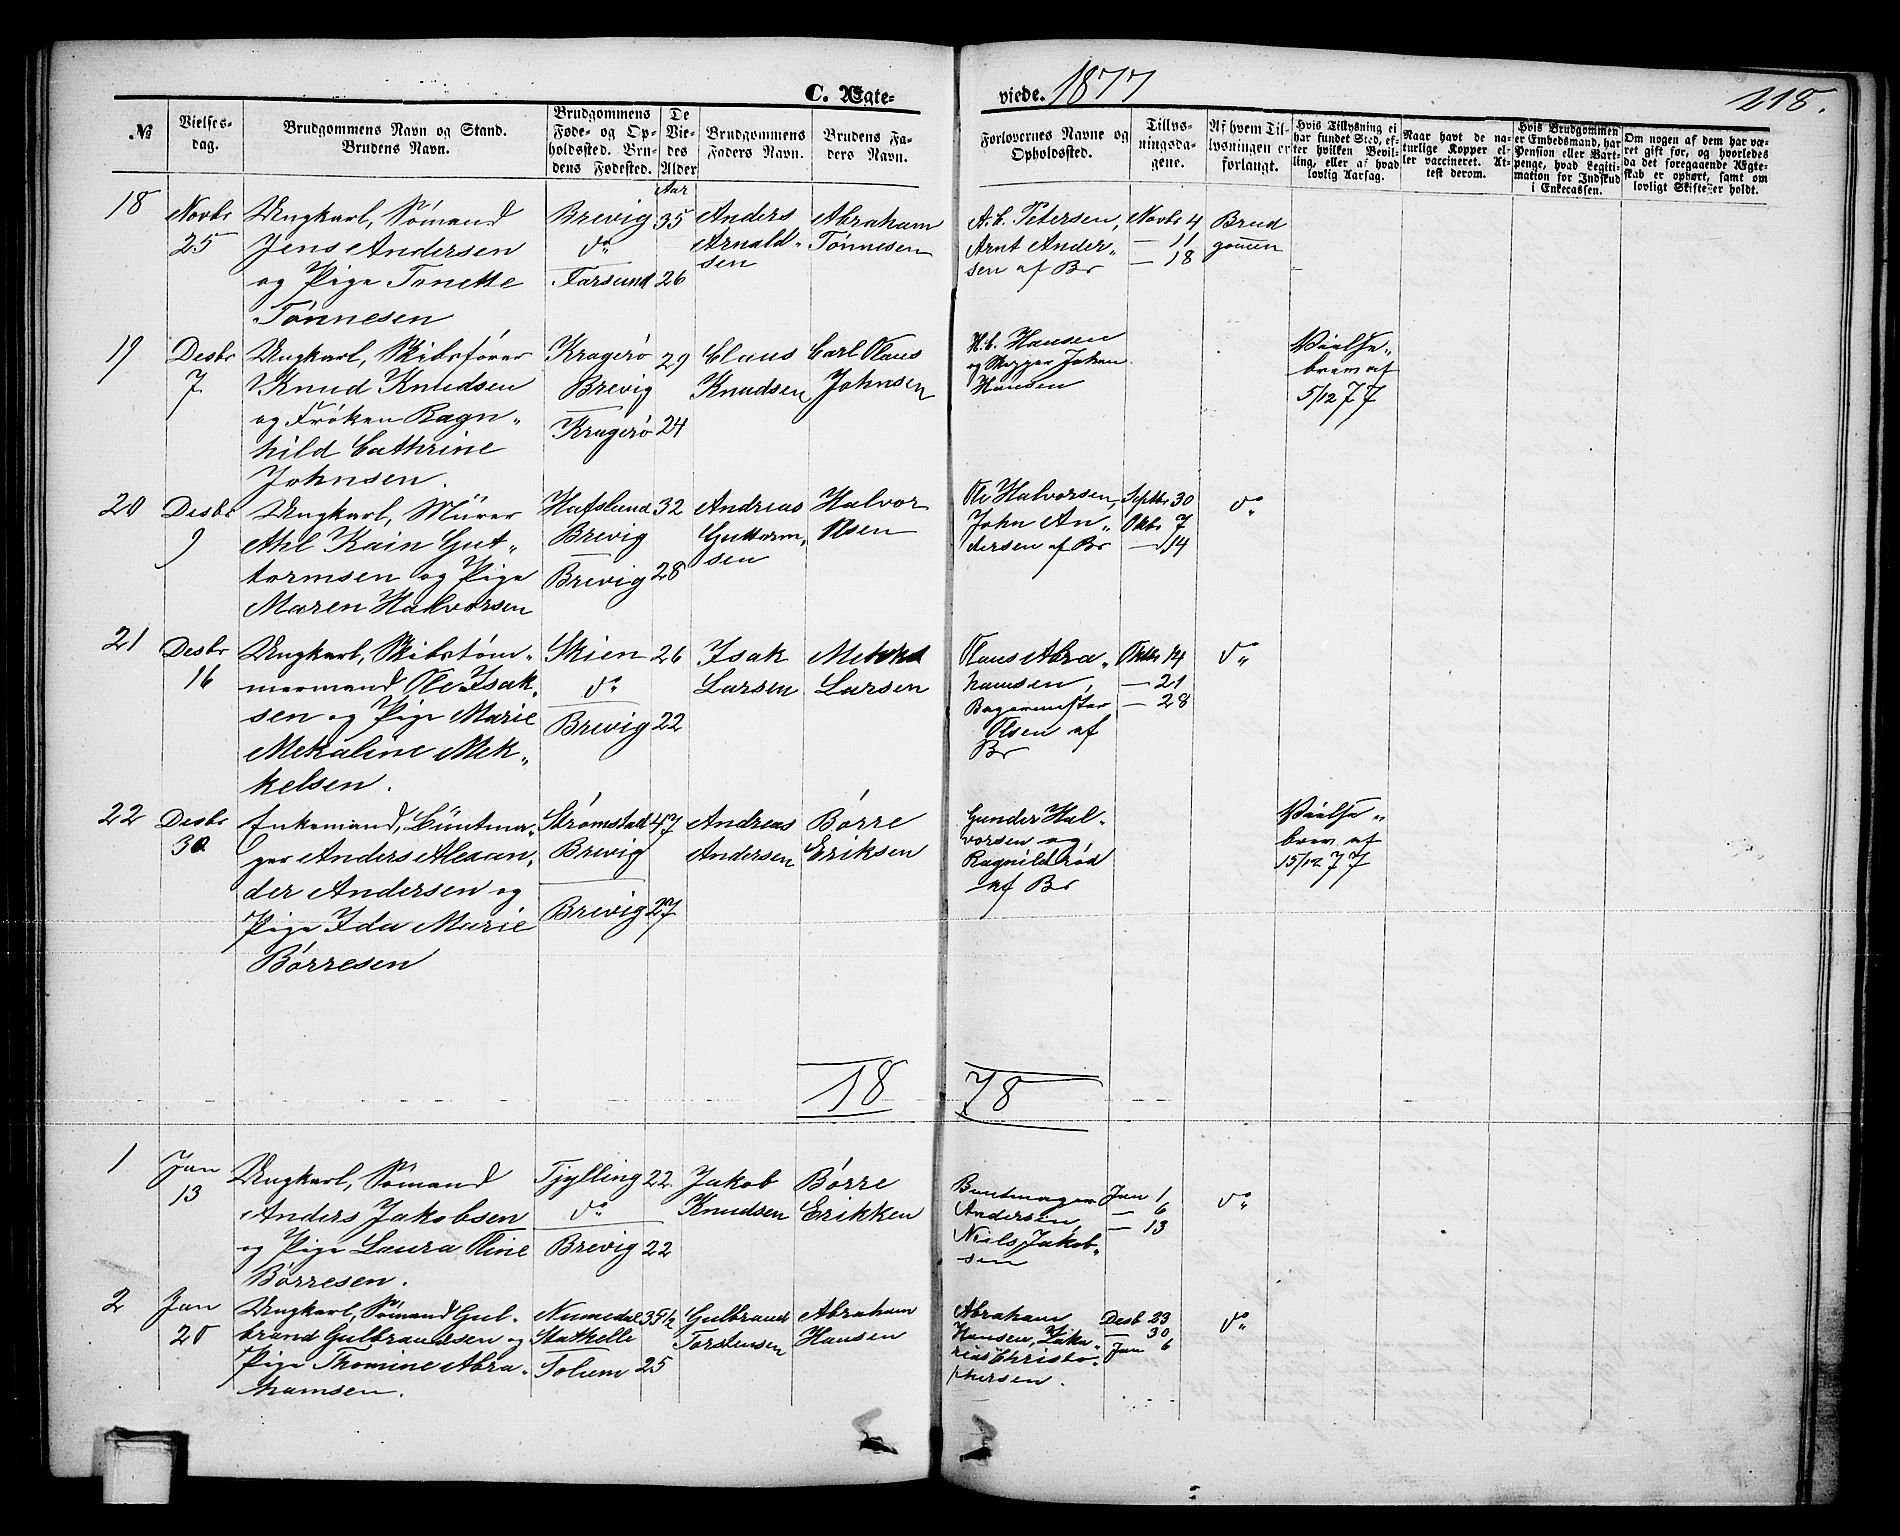 C. Ægte-
viede. 1877
218.
№
Vielses-
dag.
Brudgommens Navn og Stand.
Brudens Navn.
Brudgommens
Føde- og Op-
holdssted. Bru-
dens Fødested.
De
Vie-
des
Alder
Brudgommens
Faders Navn.
Brudens Fa-
ders Navn.
Forlovernes Navne og
Opholdssted.
Tillys-
ningsda-
gene.
Af hvem Til-
lysningen er
forlangt.
Hvis Tillysning ei
har fundet Sted, ef-
ter hvilken Bevil-
ling, eller af hvad
lovlig Aarsag.
Naar havt de na-
turlige Kopper el-
ler vaccineret. At-
test derom.
Hvis Brudgommen
er Embedsmand, har
Pension eller Vart-
penge, hvad Legiti-
mation for Indskud
i Enkecassen.
Om nogen af dem har væ-
ret gift før, og hvorledes
da det foregaaende Ægte-
skab er ophørt, samt om
lovligt Skifte er holdt.
Aar
18
Novbr
25
Ungkarl, Sømand
Jens Andersen
og Pige Tonette
Tønnesen
Brevig
do
Farsund
35
26
Anders
Arnald-
sen
Abraham
Tønnesen
A. C. Petersen,
Arnt Ander-
sen af Br
Novbr 4
— 11
— 18
Brud
gommen
19
Desbr
7
Ungkarl, Skibsfører
Knud Knudsen
og Frøken Ragn-
hild Cathrine
Johnsen.
Kragerø
Brevig
Kragerø
29
24
Claus
Knudsen
Carl Olaus
Johnsen
H. C. Hansen
og Skipper Johan
Hansen
Vielse-
brev af
5/12 77
20
Desbr
9
Ungkarl, Mürer
Ahl Kain Gut-
tormsen og Pige
Maren Halvorsen
Hafslund
Brevig
Brevig
32
28
Andreas
Guttorm-
sen
Halvor
Olsen
Ole Halvorsen,
John An-
dersen af Br
Septbr 30
Oktbr 7
— 14
do
21
Desbr
16
Ungkarl, Skibstøm-
mermand Ole Isak-
sen og Pige Marie
Mekaline Mek-
kelsen.
Skien
do
Brevig
26
22
Isak
Larsen
Larsen
Olaus Abra-
hamsen,
Bagermester
Olsen af
Br
Oktbr 14
— 21
— 28
do
22
Desbr
30
Enkemand, Büntma-
ger Anders Alexan-
der Andersen og
Pige Ida Marie
Børresen
Strømstad
Brevig
Brevig
47
27
Andreas
Andersen
Børre
Eriksen
Gunder Hal-
vorsen og
Ragnildrød
af Br
Vielse-
brev af
15/12 77
18
78
1
Jan
13
Ungkarl, Sømand
Anders Jakobsen
og Pige Laura Oline
Børresen.
Tjylling
do
Brevig
22
22
Jakob
Knudsen
Børre
Erikken
Buntmager
Andersen,
Niels Jakob-
sen
Jan 1
— 6
— 13
do
2
Jan
20
Ungkarl, Sømand Gul-
brand Gulbrandsen og
Pige Thomine Abra-
hamsen.
Numedal
Stathelle
Solum
35 1/2
25
Gulbrand
Torstensen
Abraham
Hansen
Abraham
Hansen, Zaka-
rias Christo-
phersen.
Desb 23
— 30
Jan 6
do